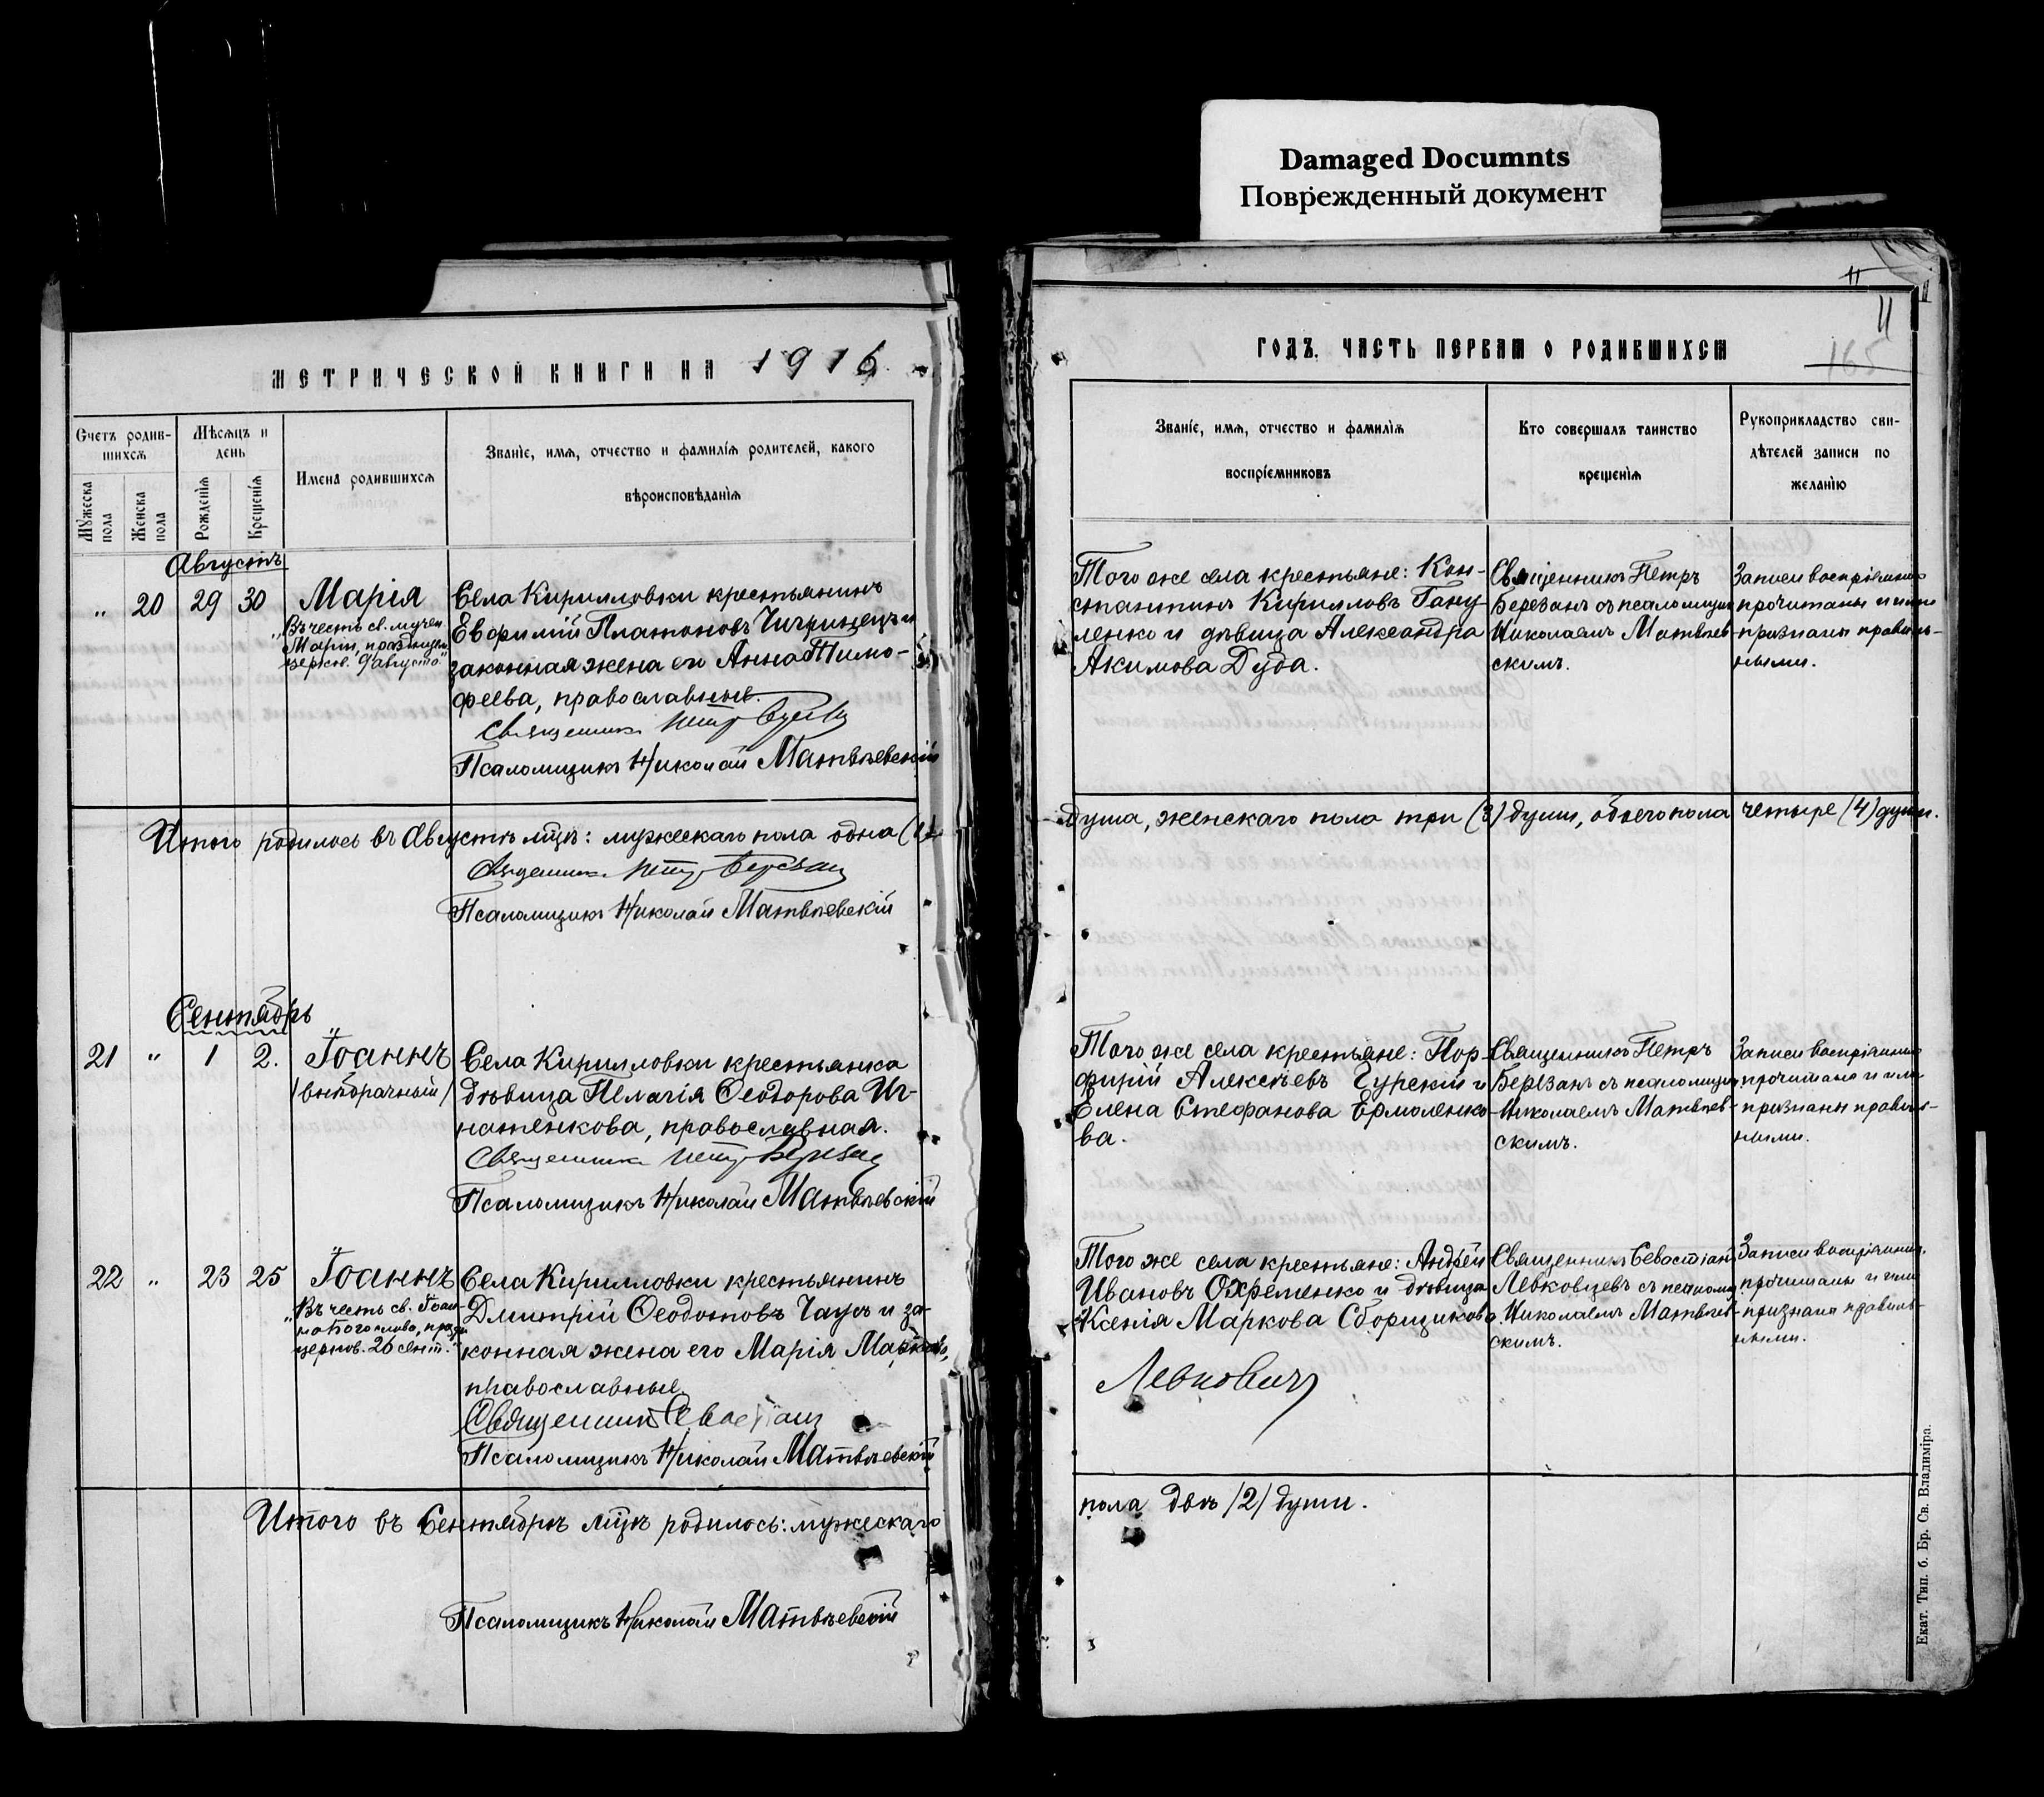 Damaged Documnts
Поврежденный документ
МЕТРИЧЕСКОЙ КНИГИ НА 1916
Счетъ родив-
шихся
Мѣсяцъ и
день
Имена родившихся
Званіе, имя, отчество и фамилія родителей, какого
вѣроисповѣданія
Мужеска
пола
Женска
пола
Рожденія
Крещенія
Августъ
„ 20 29 30 Марія
„Въ честь св. мучен.
Маріи, празднуем.
церков. 9 августа“
Села Кирилловки крестьянинъ
Евфимій Платоновъ Чигринецъ и
законная жена его Анна Тимо-
феева, православные.
Священникъ Петръ
Псаломщикъ Николай Матвѣевскій
Итого родилось въ Августѣ мцѣ: мужескаго пола одна (1)
Священникъ Петръ Березанъ
Псаломщикъ Николай Матвѣевскій
Сентябрь
21 „ 1 2. Іоаннъ
/внѣбрачный/
Села Кирилловки крестьянка
дѣвица Пелагія Ѳеодорова Иг-
натенкова, православная.
Священникъ Петръ Березанъ
Псаломщикъ Николай Матвѣевскій
22 „ 23 25 Іоаннъ
„Въ честь св. Іоан-
на Богослова, празд.
церков. 26 сент.“
Села Кирилловки крестьянинъ
Дмитрій Ѳеодотовъ Чаусъ и за-
конная жена его Марія Маркова,
православные.
Священникъ Севастіан
Псаломщикъ Николай Матвѣевскій
Итого въ Сентябрѣ мцѣ родилось: мужескаго
Псаломщикъ Николай Матвѣевскій
11
11
11
165
ГОДЪ. ЧАСТЬ ПЕРВАЯ О РОДИВШИХСЯ
Званіе, имя, отчество и фамилія
воспріемниковъ
Кто совершалъ таинство
крещенія
Рукоприкладство сви-
дѣтелей записи по
желанію
Того же села крестьяне: Кон-
стантинъ Кирилловъ Гану-
ленко и дѣвица Александра
Акимова Дуда.
Священникъ Петръ
Березанъ съ псаломщик.
Николаемъ Матвѣев-
скимъ.
Записи воспріемник.
прочитаны и ими
признаны правиль-
ными.
душа, женскаго пола три (3) души, обоего пола четыре (4) души.
Того же села крестьяне: Пор-
фирій Алексѣевъ Гурскій и
Елена Стефанова Ермоленко-
ва.
Священникъ Петръ
Березанъ съ псаломщик.
Николаемъ Матвѣев-
скимъ.
Записи воспріемник.
прочитаны и ими
признаны правиль-
ными.
Того же села крестьяне: Андрей
Ивановъ Охременко и дѣвица
Ксенія Маркова Сборщикова.
Левковичъ
Священникъ Севастіан
Левковцевъ съ псалом.
Николаемъ Матвѣев-
скимъ.
Записи воспріемник.
прочитаны и ими
признаны правиль-
ными.
пола двѣ /2/ души.
Екат. Тип. б. Бр. Св. Владиміра.